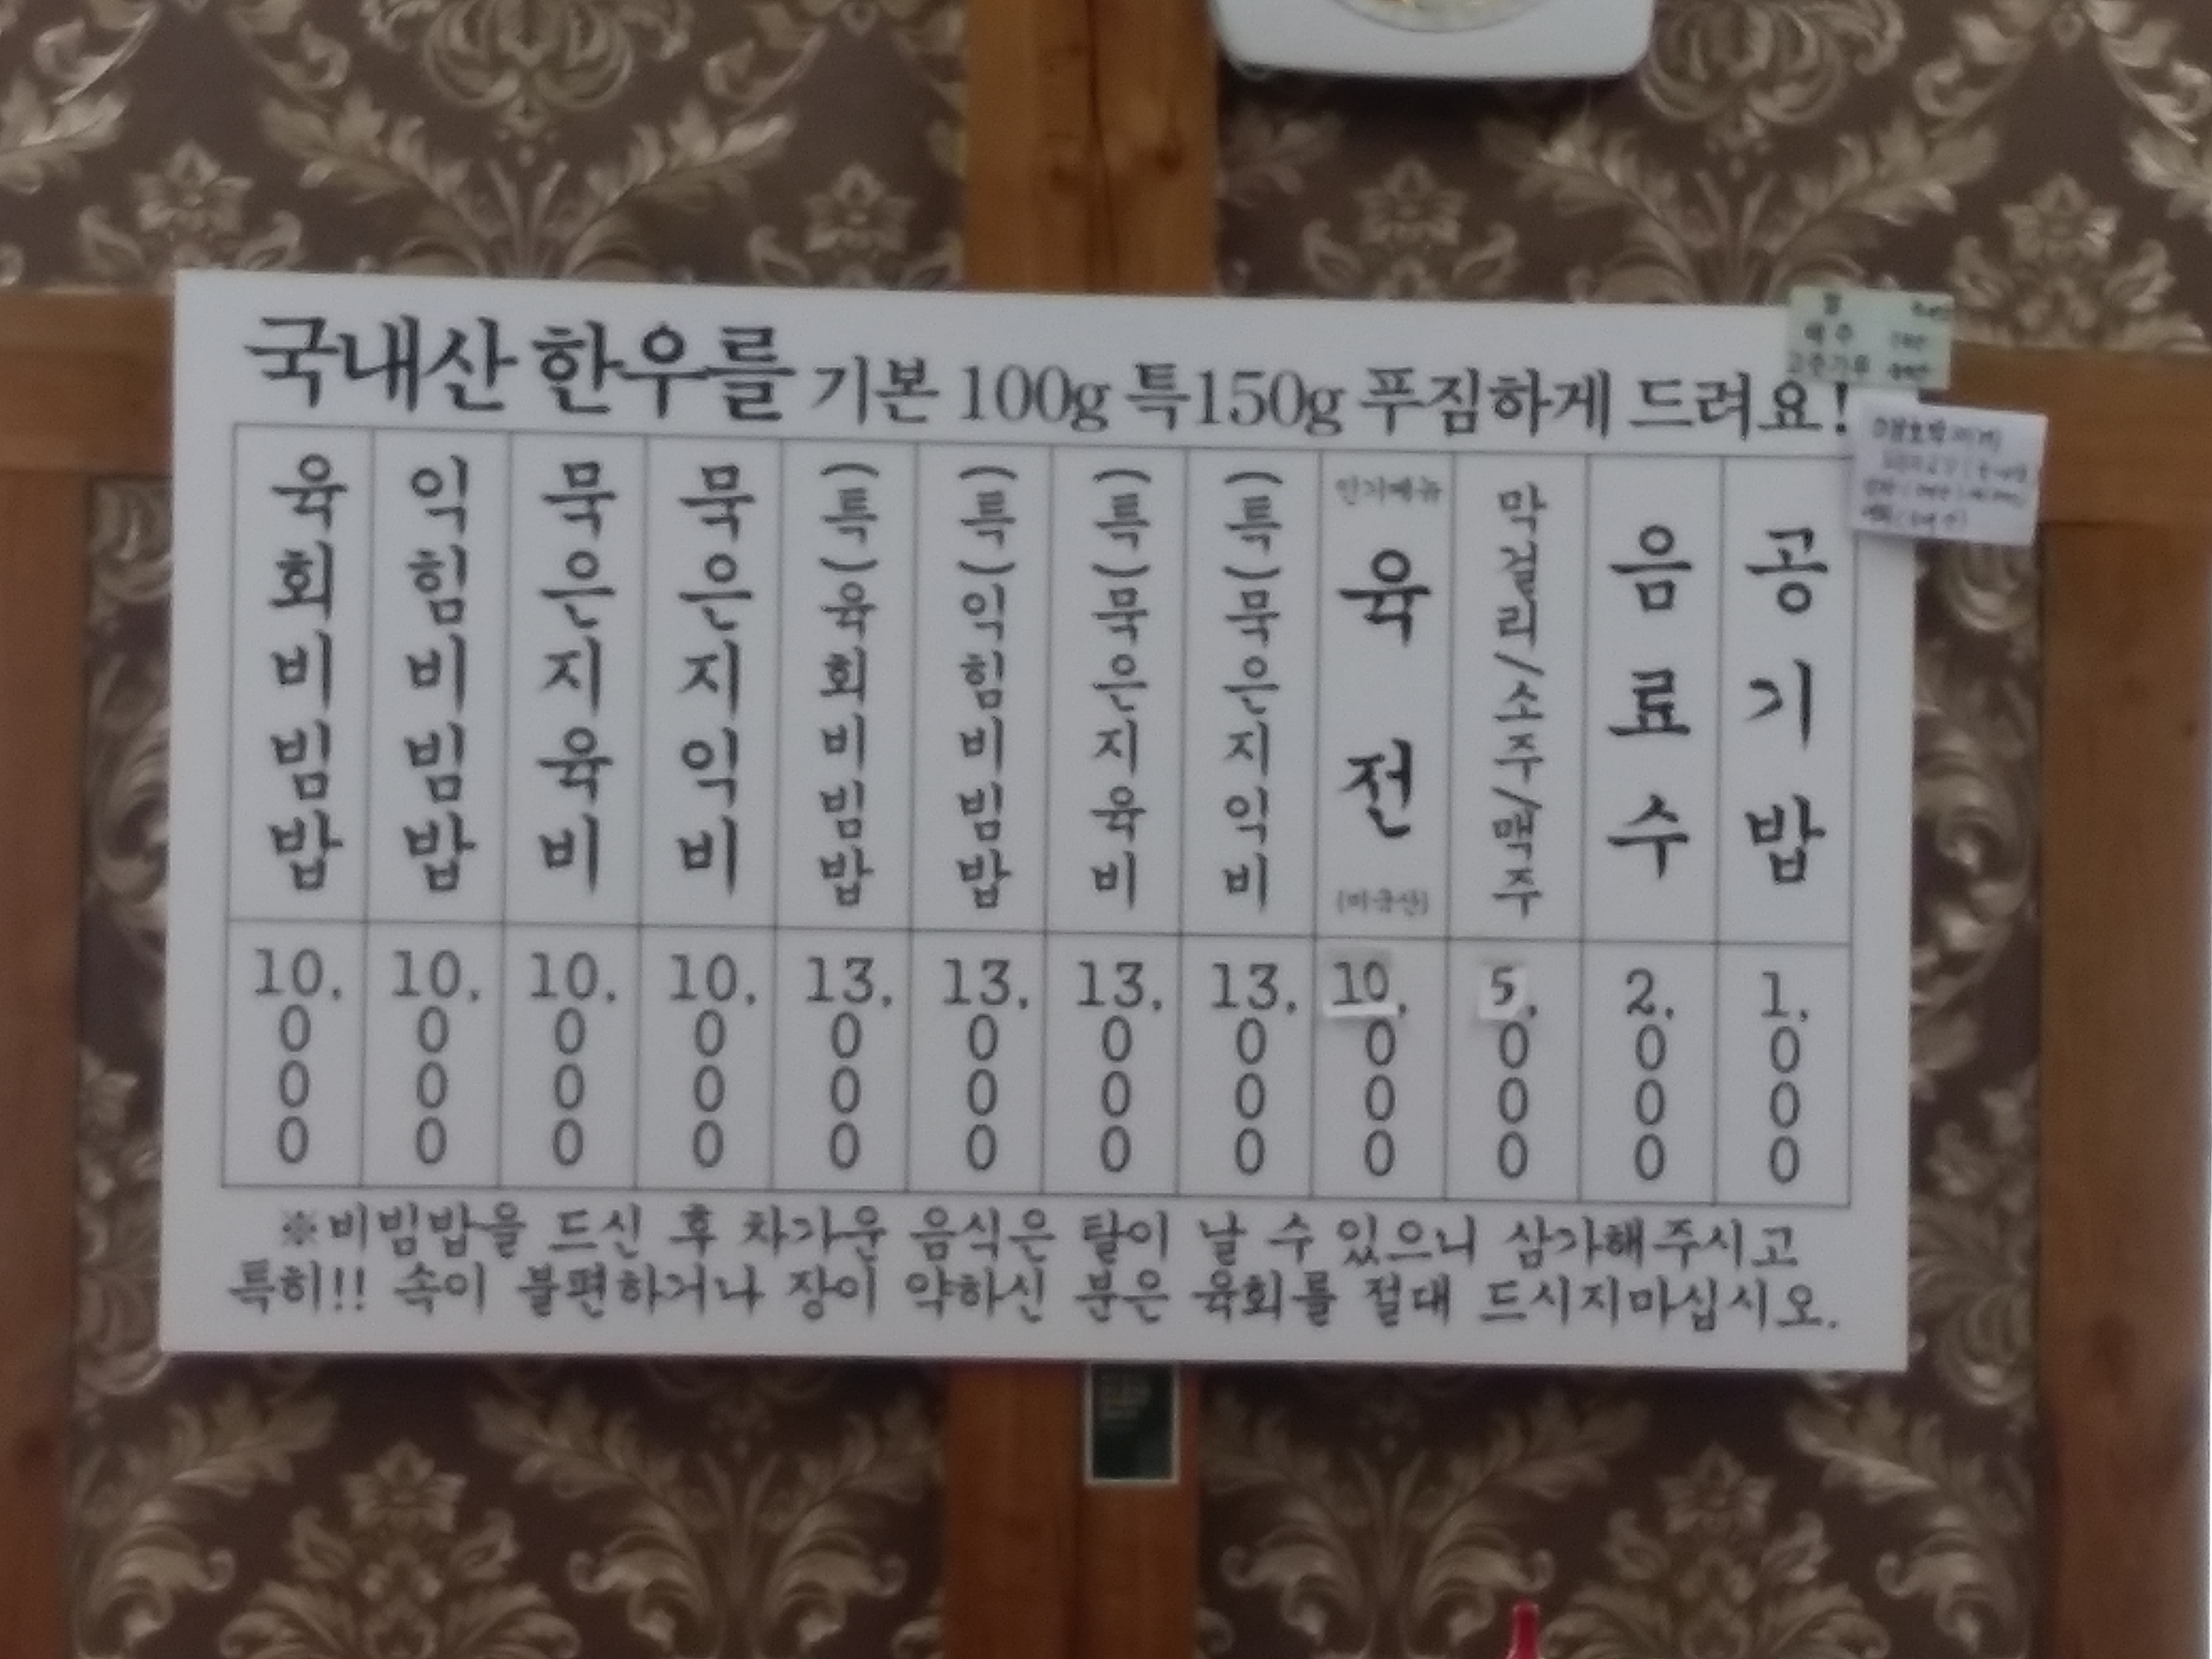 국내산 한우를 기본 100g 특150g 푸짐하게 드려요!
육회비빔밥 10.000
익힘비빔밥 10.000
묵은지육비 10.000
묵은지익비 10.000
(특)육회비빔밥 13.000
(특)익힘비빔밥 13.000
(특)묵은지육비 13.000
(특)묵은지익비 13.000
인기메뉴 육전 (미국산) 10.000
막걸리/소주/맥주 5.000
음료수 2.000
공기밥 1.000
※비빔밥을 드신 후 차가운 음식은 탈이 날 수 있으니 삼가해주시고
특히!! 속이 불편하거나 장이 약하신 분은 육회를 절대 드시지마십시오.